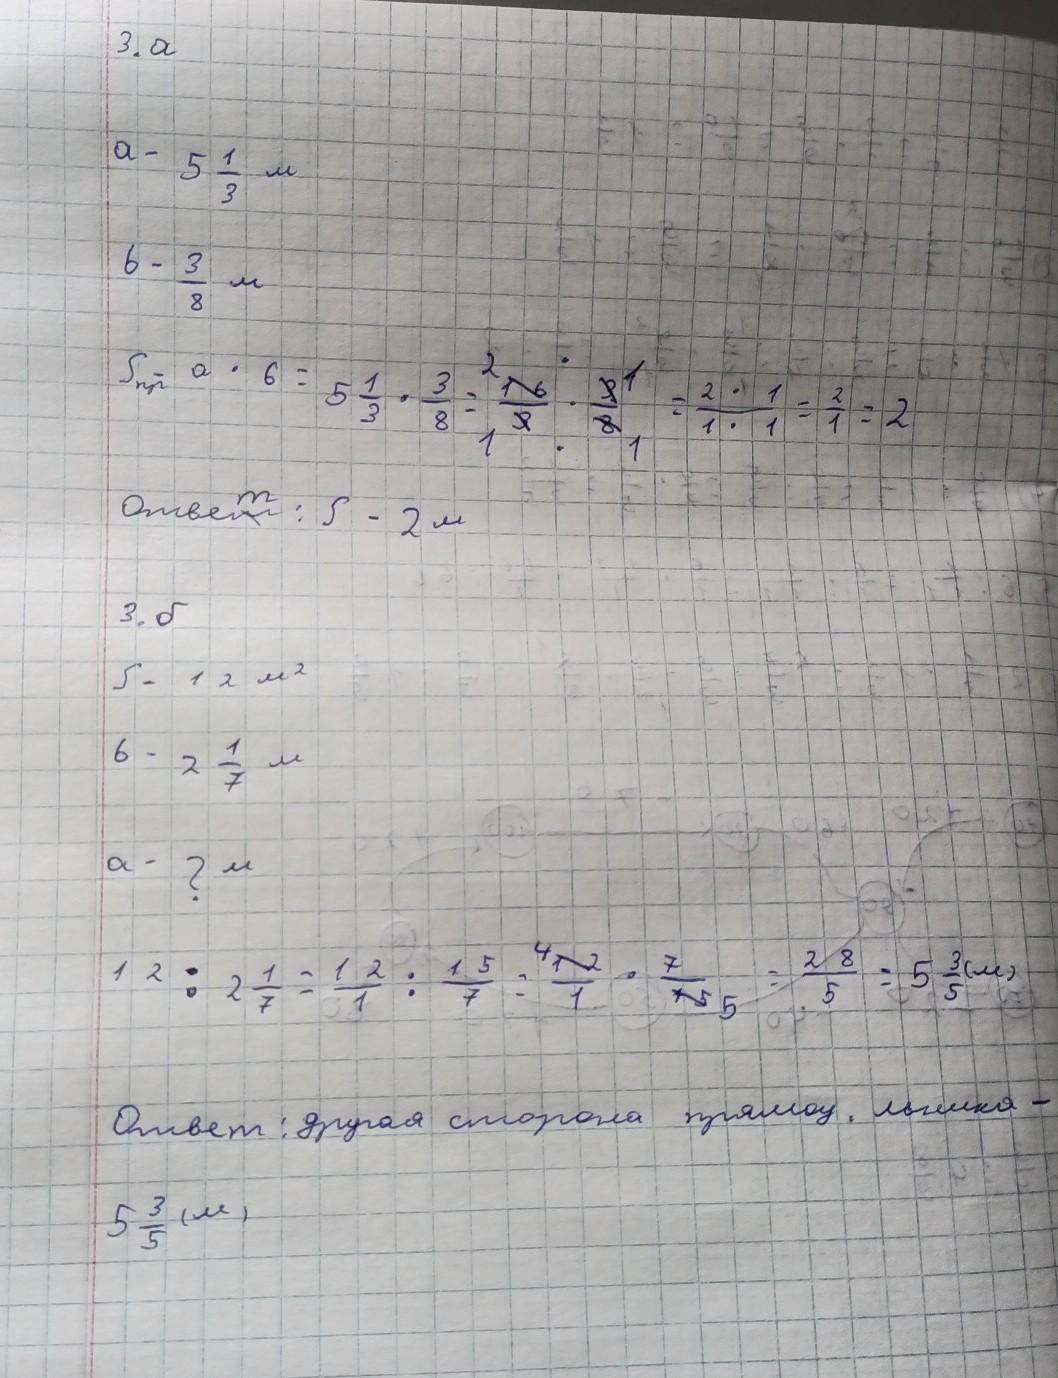 3.а
а - 5 1/3 м
в - 3/8 м
Sпр = а · в = 5 1/3 · 3/8 = 16/3 · 3/8 = 2 · 1/1 · 1 = 2/1 = 2
Ответ: S - 2 м
3.б
S - 12 м²
в - 2 1/7 м
а - ? м
12 : 2 1/7 = 12/1 : 15/7 = 12/1 · 7/15 = 28/5 = 5 3/5 (м)
Ответ: другая сторона прямоу.льника -
5 3/5 (м)